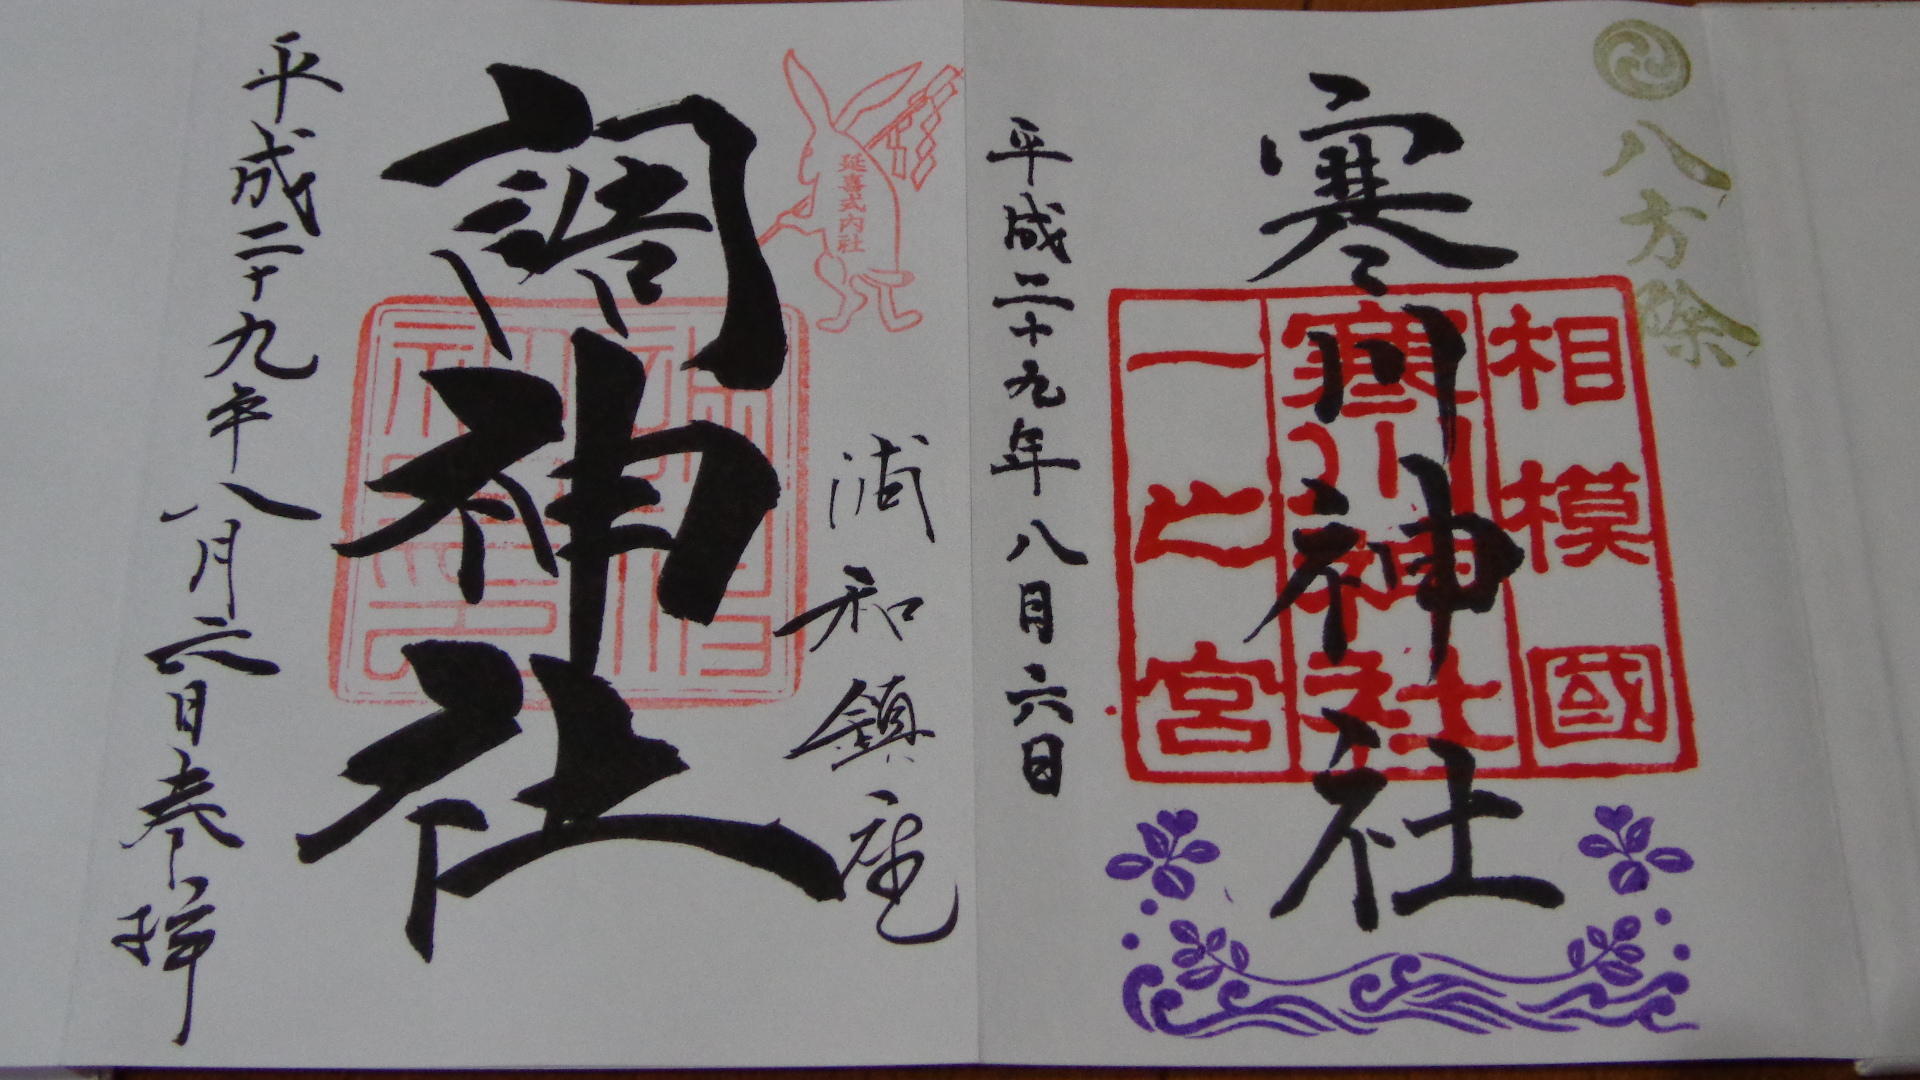 八方除
相模國
寒川神社
一之宮
寒川神社
平成二十九年八月六日
延喜式内社
浦和鎮座
調神社
平成二十九年八月六日奉拝